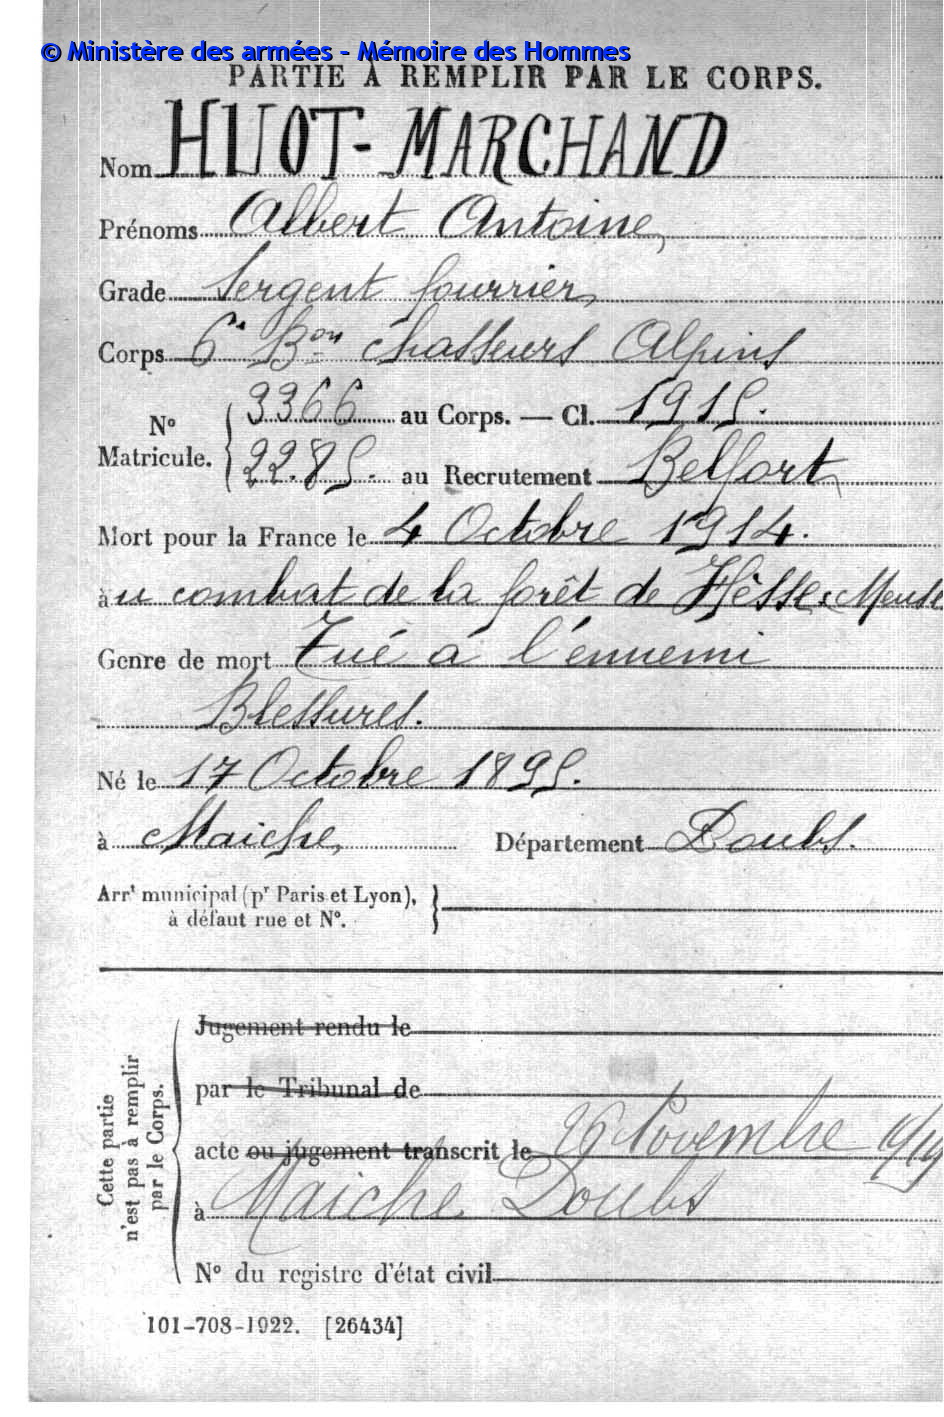 © Ministère des armées - Mémoire des Hommes
PARTIE À REMPLIR PAR LE CORPS.
Nom HUOT-MARCHAND
Prénoms Albert Antoine,
Grade Sergent fourrier,
Corps 6e Bon chasseurs Alpins
No Matricule. { 3366 au Corps. — Cl. 1915.
2285. au Recrutement Belfort
Mort pour la France le 4 Octobre 1914.
àu combat de la forêt de Hesse (Meuse
Genre de mort Tué à l'ennemi
Blessures.
Né le 17 Octobre 1895.
à Maiche, Département Doubs.
Arrt municipal (pr Paris et Lyon),
à défaut rue et No.
Cette partie n'est pas à remplir par le Corps.
Jugement rendu le
par le Tribunal de
acte ou jugement transcrit le 26 Novembre
à Maiche Doubs
No du registre d'état civil
101-708-1922. [26434]